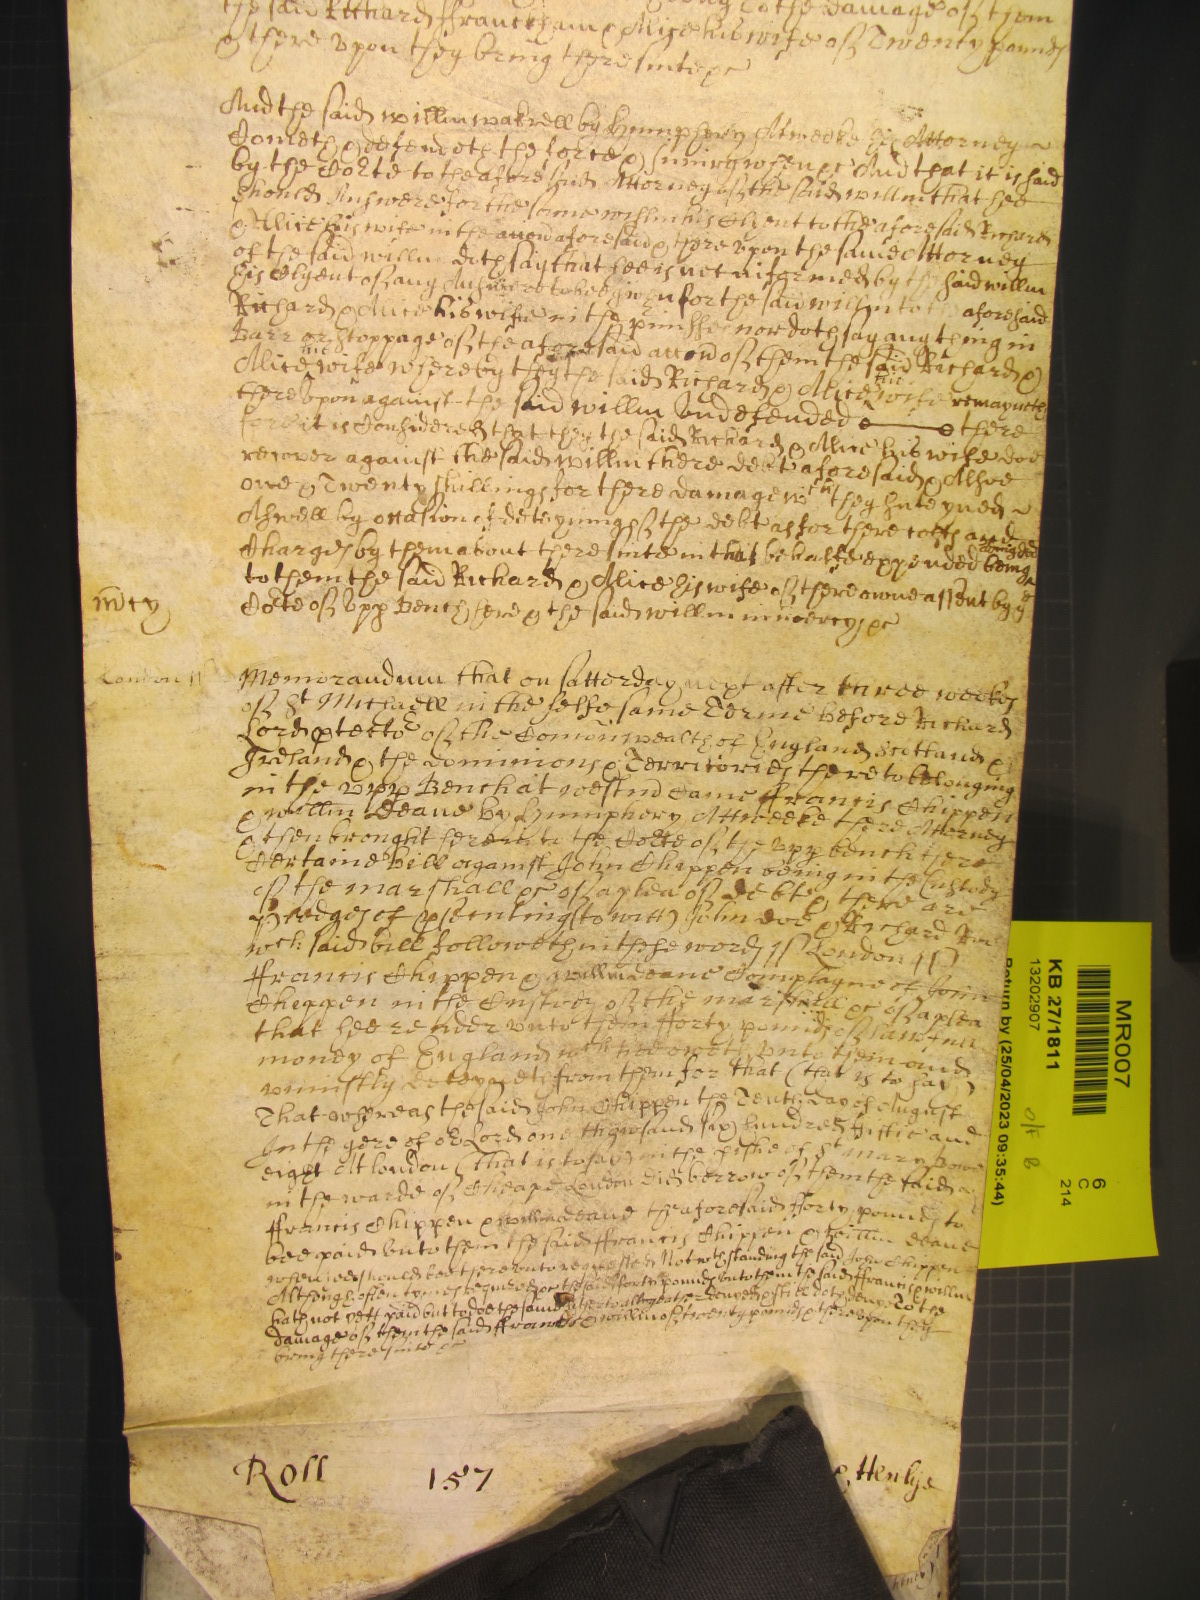 the said Richard ffranckham & Alice his wife of Twenty pounds
& there upon they bring there suite &c
And the said willm wakrell by Humphery Atweeke his Attorney
Cometh & defendeth the force & Iniury when &c And that it is said
by the Corte to the aforesaid Attorney of the said willm that hee
should Answere for the same willm his Clyent to the aforesaid Richard
& Alice his wife in the accon aforesaid & there upon the same Attorney
of the said willm doth say that hee is not informed by the said willm
his Clyent of any Answere to bee given for the said willm to aforesaid
Richard & Alice his wife in the pmisses nor doth say any thing in
Barr or Stoppage of the aforesaid accon of them the said Richard &
Alice his wife whereby they the said Richard & Alice his wife remayneth
there upon against the said willm Undefended there
fore it is Considered that they the said Richard & Alice his wife doe
recover against the said willm there debt aforesaid & Alsoe
one & Twenty shillings for there damages wch they susteyned
Aswell by occasion of deteyninge of the debt as for there costs and
Charges by them about there suite in that behalfe expended being adiudged
to them the said Richard & Alice his wife of there owne assent by ye
Corte of Upp Bench here & the said willm in mercy &c
mcy
London ss
Memorandum that on satterday next after three weekes
of St Michaell in the selfe same Terme before Richard
Lord ptector of the Comonwealth of England Scotland &
Ireland & the dominions & Territories thereto belonging
in the upp Bench at westmr Came ffrancis Chippen
& willm deane by Humphery Atweeke there Attorney
& then brought here into the Corte of the upp bench there
Certaine bill against John Chippen being in the Custody
of the marshall &c of a plea of debt & there are
pledges of psecuting (to witt) John doe & Richard Roe
wch said bill followeth in these words ss London ss
ffrancis Chippen & willm deane Complayne of John
Chippen in the Custody of the marshall &c of a plea
that hee render unto them fforty pounds of lawfull
money of England wch hee oweth unto them and
uniustly deteyneth from them for that (that is to say)
That whereas the said John Chippen the Tenth day of August
In the yere of or Lord one thowsand six hundred fiftie and
eight At london (that is to say) in the pishe of St mary bowe
in the warde of Cheape London did borrow of them the said
ffrancis Chippen & willm deane the aforesaid fforty pounds to
bee paid unto them the said ffrancis Chippen & willm deane
when hee should bee thereunto requested Notwthstanding the said John Chippen
Although often tymes required &c the said forty pounds unto them the said ffrancis & willm
hath not yett paid but to doe the same hitherto altogeather denyed & still doth denye To the
damage of them the said ffrancis & willm of twenty pounds & thereupon they
bring there suite &c
Roll 157
& Henlye
MR007
KB 27/1811
13202907
Return by (25/04/2023 09:35:44)
6
C
214